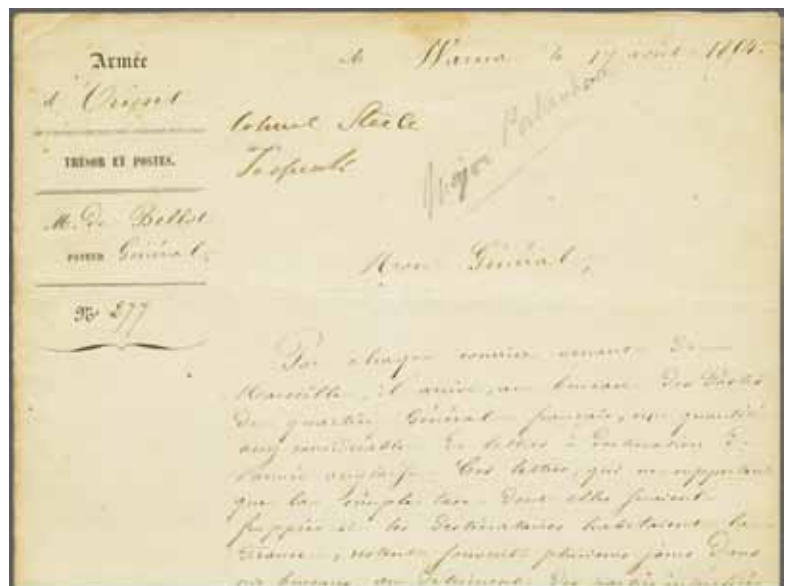 Armée
d'Orient
TRÉSOR ET POSTES.
M. De Bellot
PAYEUR Général,
N° 277
Warna le 17 août 1854.
Colonel Steele
Major
Mon Général,
Par chaque courrier venant de
Marseille, il arrive, au bureau des Postes
du quartier Général français, une quantité
assez considérable de lettres à destination de
l'armée anglaise. Ces lettres, qui ne supportent
que la simple taxe dont elles seraient
frappées si les destinataires habitaient la
France, restent souvent plusieurs jours dans
au détriment des